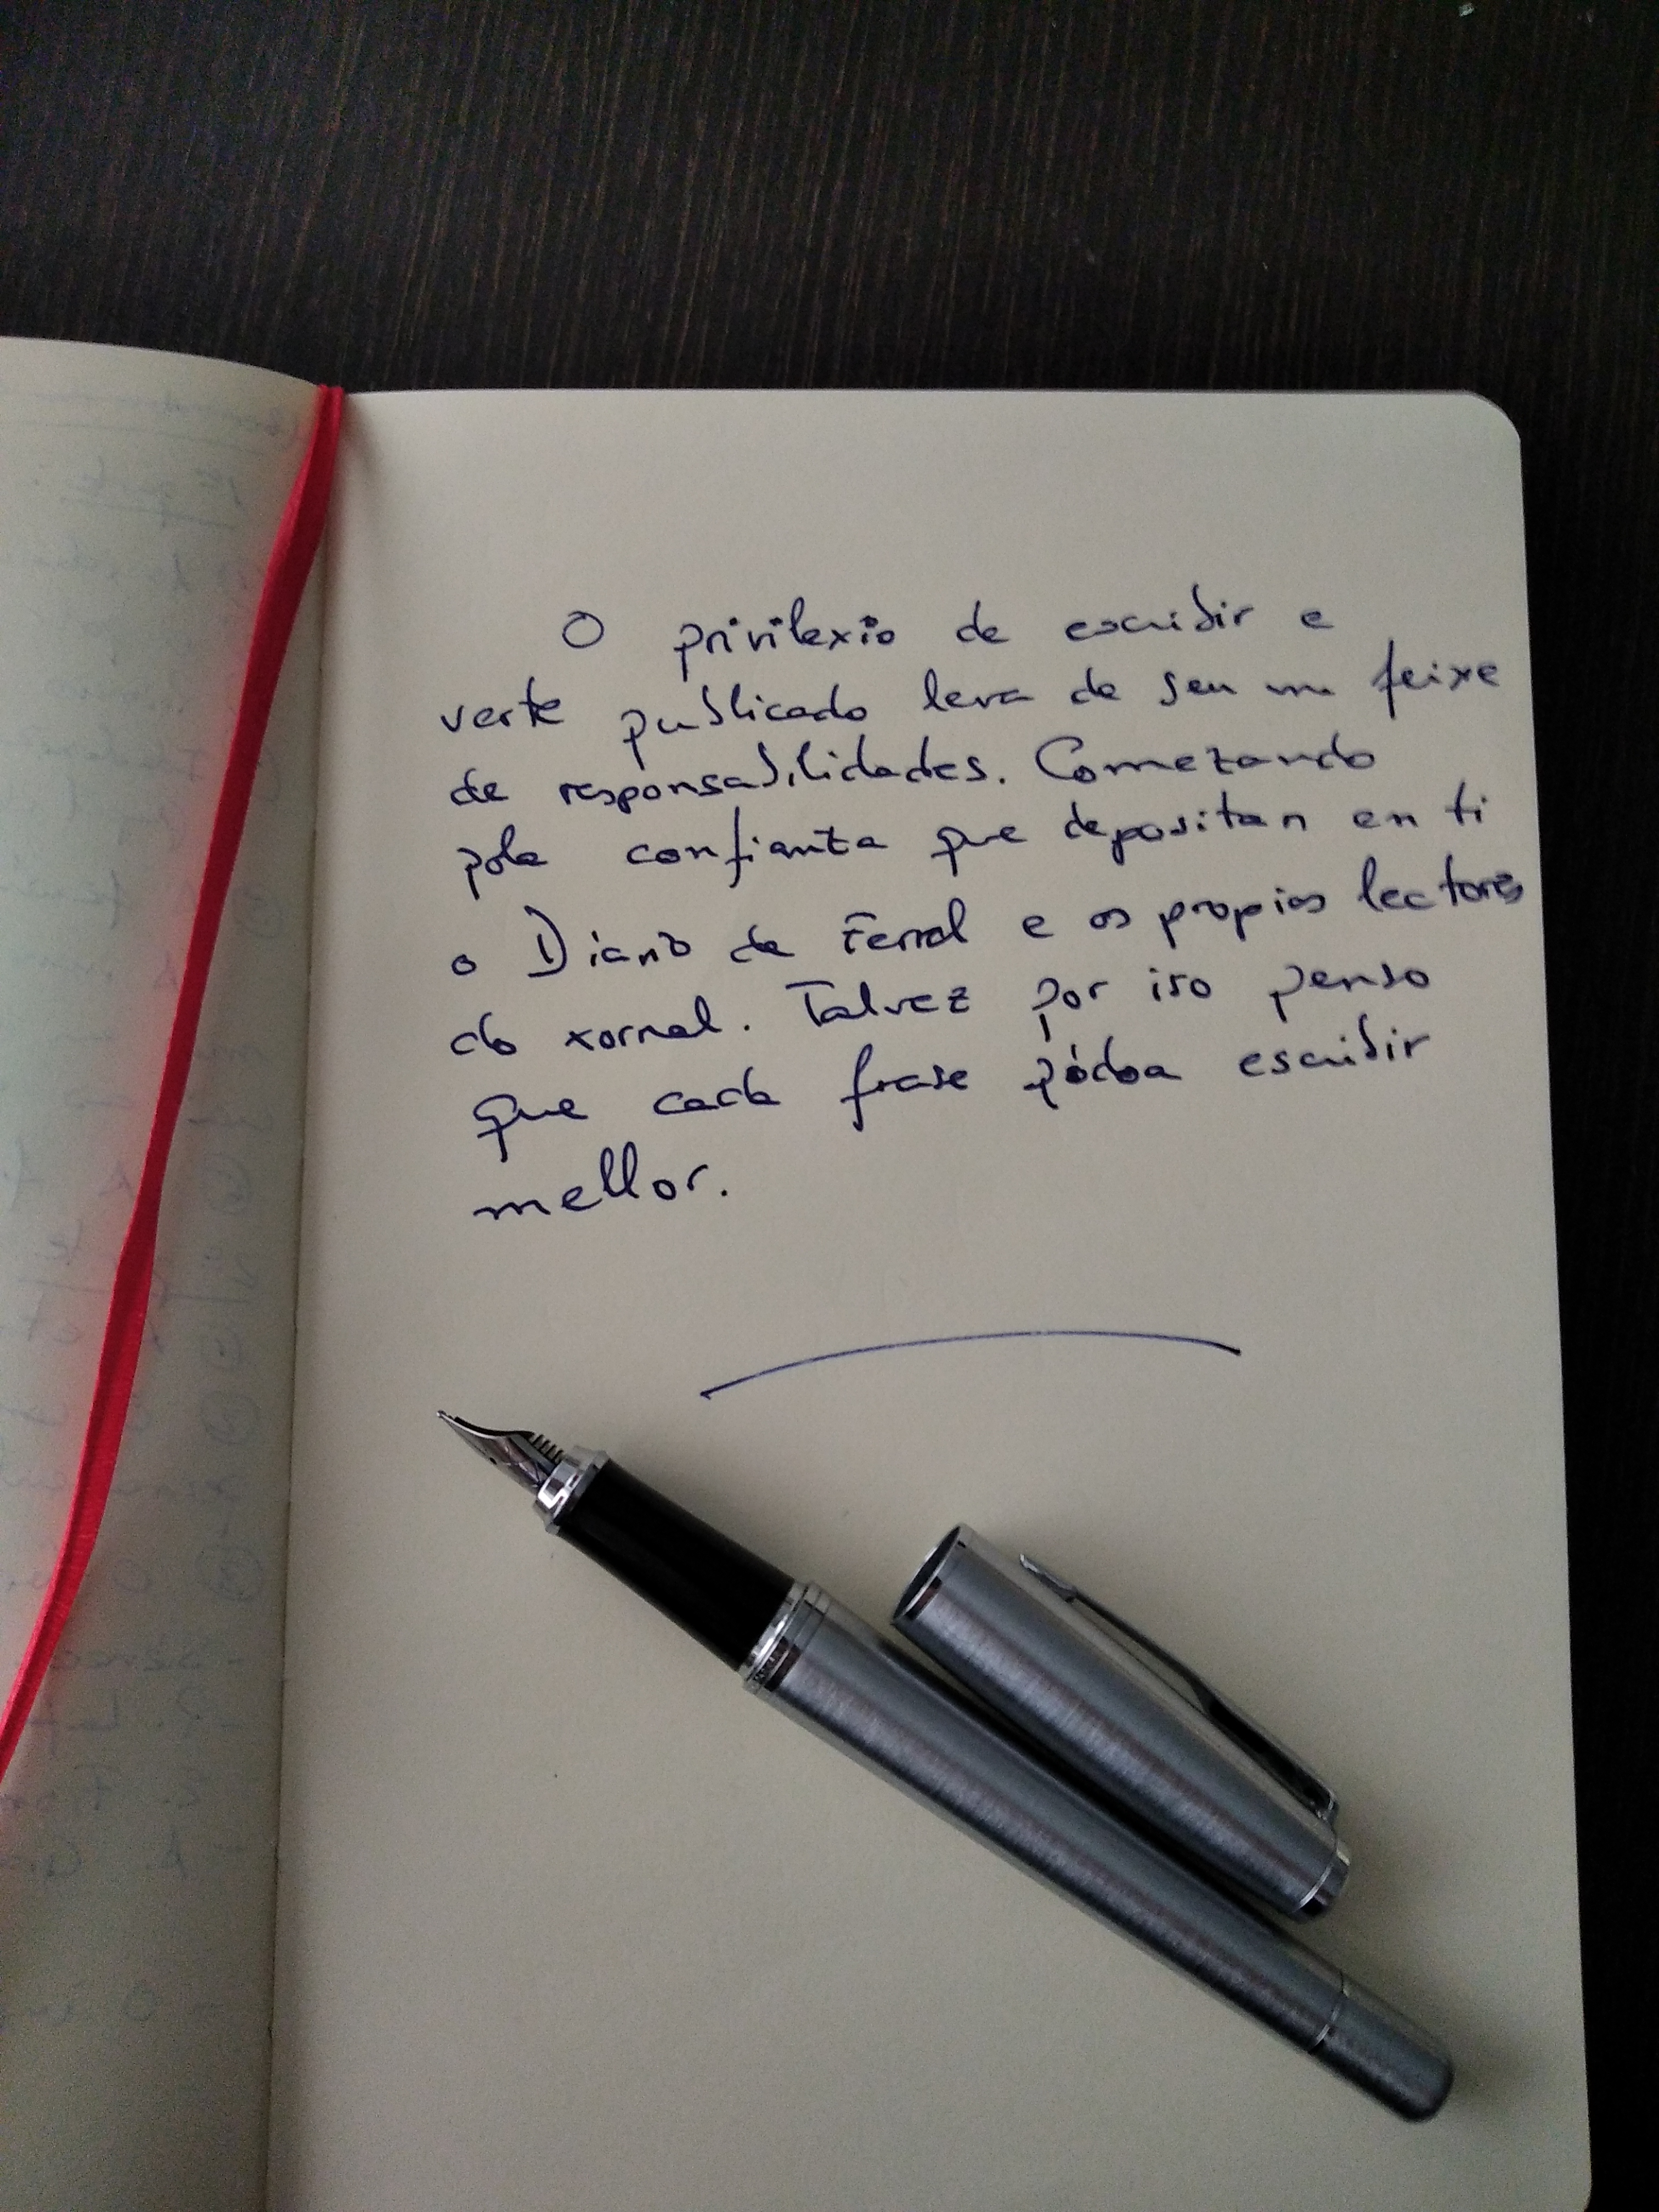 O privilexio de escribir e
verte publicado leva de seu un feixe
de responsabilidades. Comezando
pola confianza que depositan en ti
o Diario de Ferrol e os propios lectores
do xornal. Talvez por iso penso
que cada frase pódoa escribir
mellor.